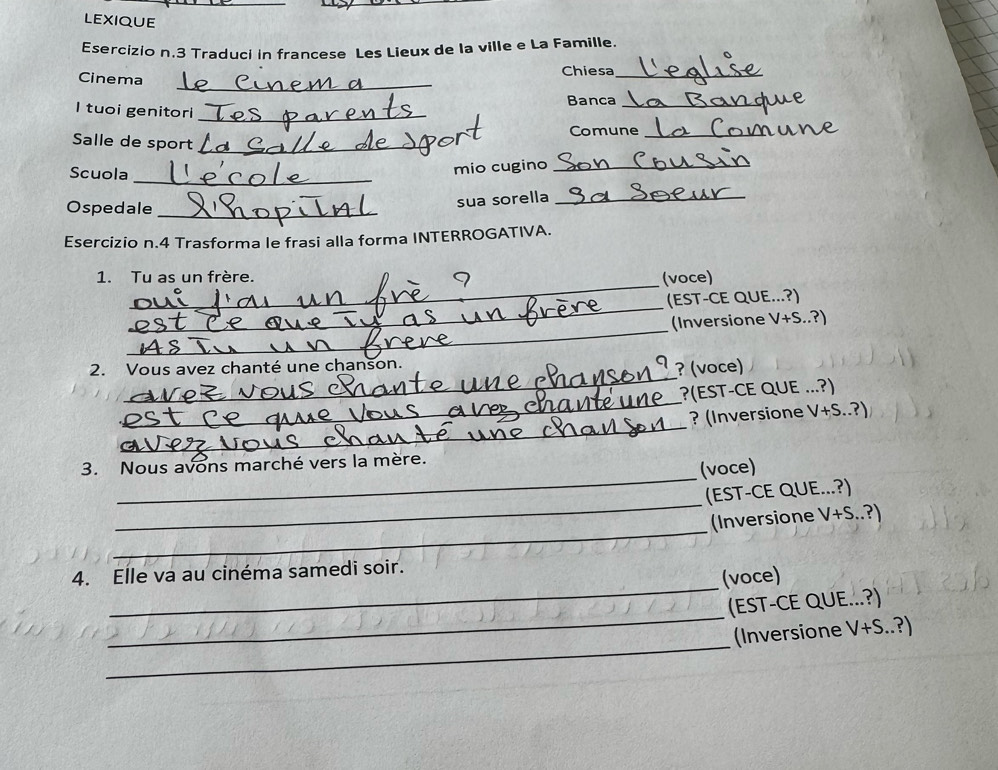 LEXIQUE
Esercizio n.3 Traduci in francese Les Lieux de la ville e La Famille.
Cinema le cinema Chiesa L'eglise
I tuoi genitori Tes parents Banca La Banque
Salle de sport La Salle de sport Comune La Comune
Scuola L'école mio cugino Son Cousin
Ospedale L'hopiTAL sua sorella Sa Soeur
Esercizio n.4 Trasforma le frasi alla forma INTERROGATIVA.
1. Tu as un frère.
oui j'ai un frè ? (voce)
est ce que Tu as un frère (EST-CE QUE...?)
AS Tu un frere (Inversione V+S..?)
2. Vous avez chanté une chanson.
avez vous chante une chanson? ? (voce)
est ce que Vous avez chanté une ?(EST-CE QUE ...?)
avez vous chanté une chanson ? (Inversione V+S..?)
3. Nous avons marché vers la mère.
(voce)
(EST-CE QUE...?)
(Inversione V+S..?)
4. Elle va au cinéma samedi soir.
(voce)
(EST-CE QUE...?)
(Inversione V+S..?)